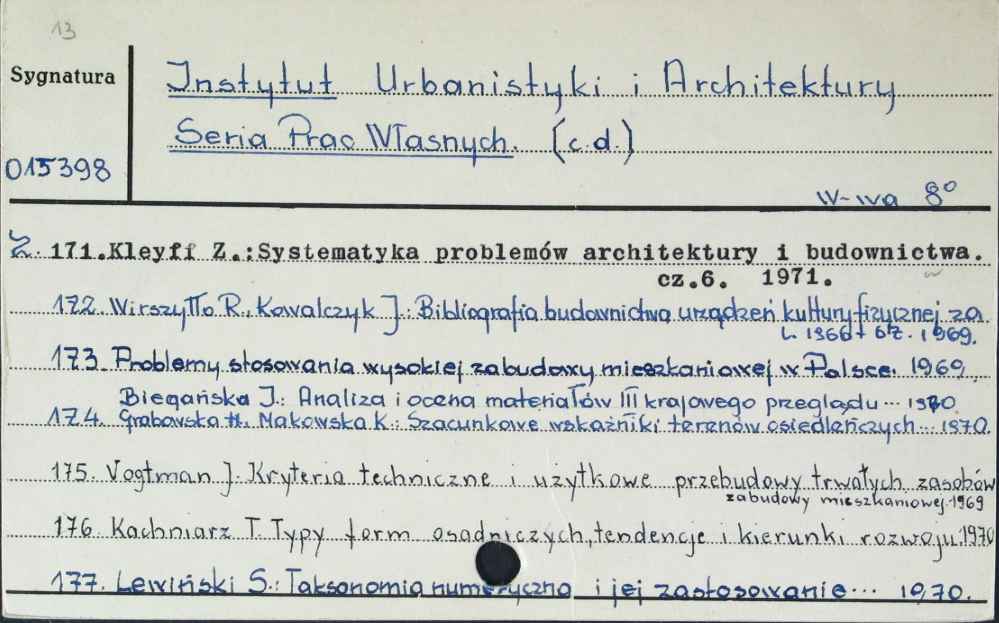 13
Sygnatura
Instytut Urbanistyki i Architektury
Seria Prac Własnych. (c.d.)
015398
W-wa 8°
Z. 171. Kleyff Z.: Systematyka problemów architektury i budownictwa.
cz.6. 1971.
172. Wirszyłło R., Kowalczyk J.: Bibliografia budownictwa urządzeń kultury fizycznej za
1969.
173. Problemy stosowania wysokiej zabudowy mieszkaniowej w Polsce. 1969.
Biegańska J.: Analiza i ocena materiałów III krajowego przeglądu ... 1970.
174. Grabowska H. Makowska K.: Szacunkowe wskaźniki terenów osiedleńczych ... 1970.
175. Vogtman J. Kryteria techniczne i użytkowe przebudowy trwałych zasobów
zabudowy mieszkaniowej. 1969
176. Kachniarz T. Typy form osadniczych, tendencje i kierunki rozwoju. 1970
177. Lewiński S.: Taksonomia numeryczna i jej zastosowanie ... 1970.